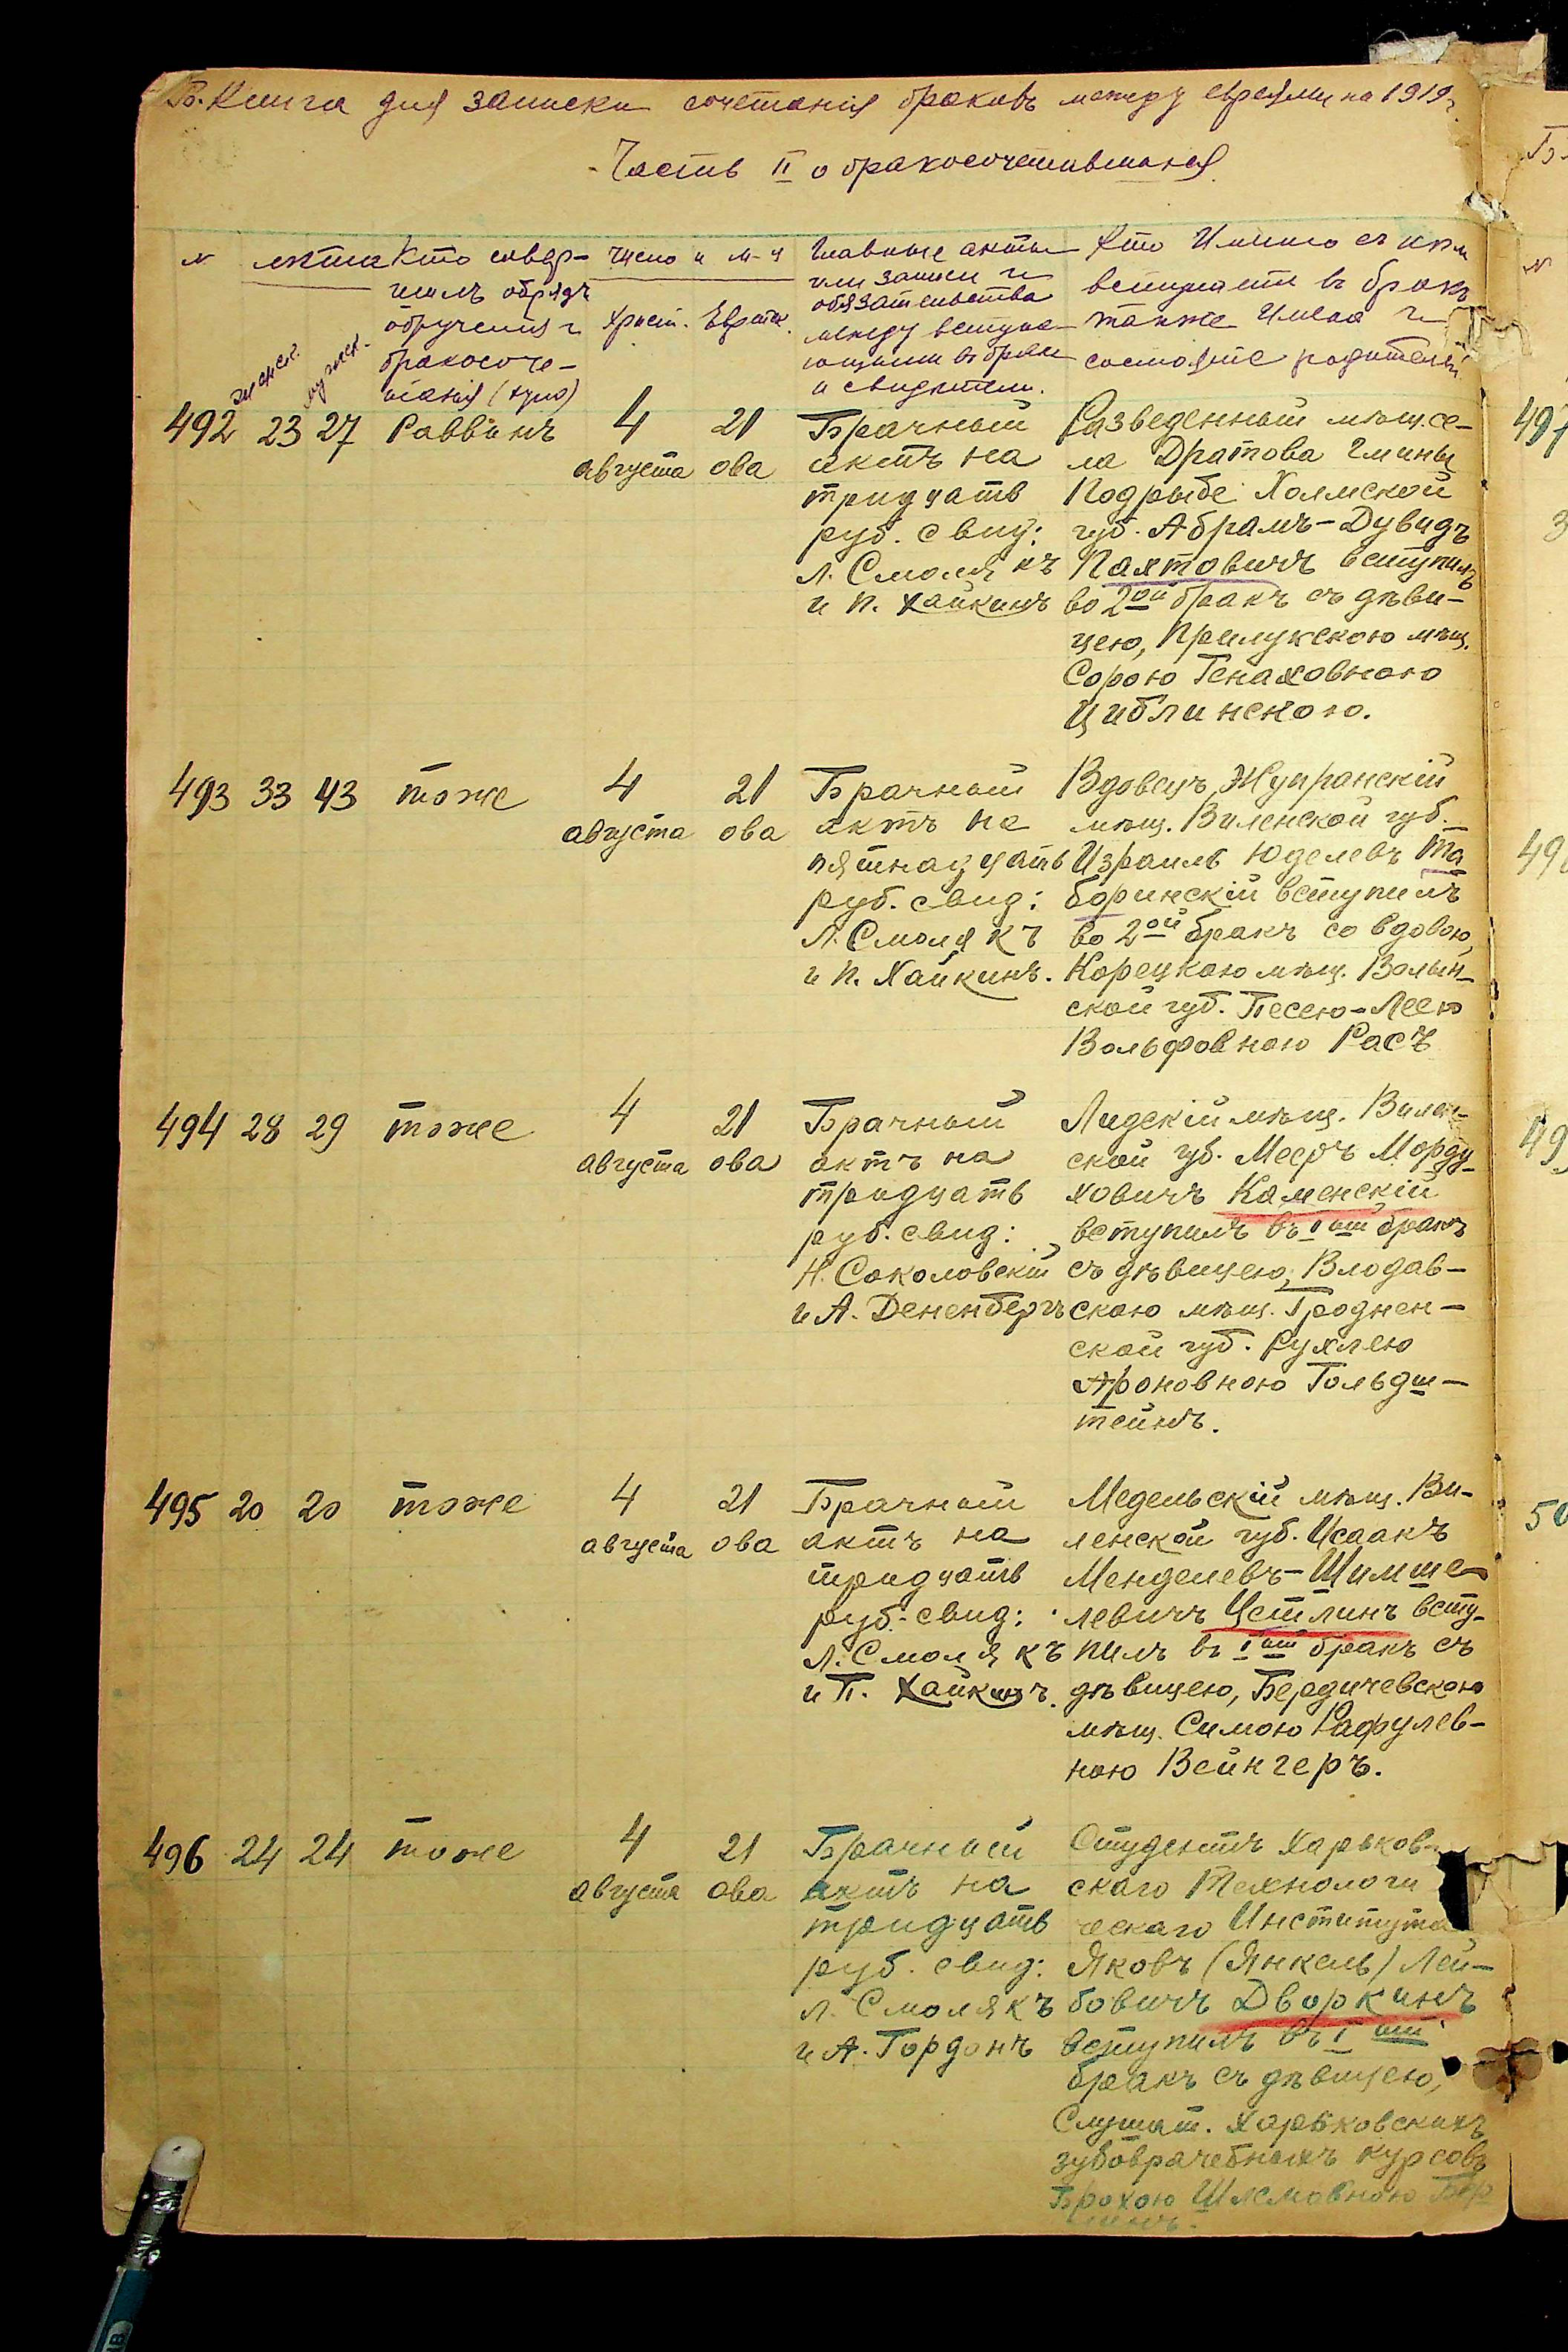 Б. Книга для записки сочетанія браковъ между евреями на 1919 г.
Часть II о бракосочетавшихся
№
лѣта
женск.
мужск.
Кто совер-
шилъ обрядъ
обрученія и
бракосоче-
танія (хупо)
Число и м-ц
Христ. Еврейск.
Главные акты
или записи и
обязательства
между вступа-
ющими въ бракъ
и свидѣтели.
Кто Именно съ кѣмъ
вступаетъ въ бракъ
также Имена и
состояніе родителей
492 23 27 Раввинъ
4 21
августа ова
Брачный
актъ на
тридцать
руб. свид:
Л. Смолякъ
и П. Хайкинъ
Разведенный мѣщ. се-
ла Дратова Гмины
Подрыбе Холмской
губ. Абрамъ-Дувидъ
Пахтовичъ вступилъ
во 2ой бракъ съ дѣви-
цею, Прилукскою мѣщ.
Сорою Генаховною
Циблинскою.
493 33 43 тоже
4 21
августа ова
Брачный
актъ на
пятнадцать
руб. свид:
Л. Смолякъ
и П. Хайкинъ.
Вдовецъ, Жупранскій
мѣщ. Виленской губ.
Израиль Юделевъ Та
боринскій вступилъ
во 2ой бракъ со вдовою,
Корецкою мѣщ. Волын-
ской губ. Песею-Леею
Вольфовною Расъ
494 28 29 тоже
4 21
августа ова
Брачный
актъ на
тридцать
руб. свид:
Н. Соколовскій
и А. Дененбергъ
Лидскій мѣщ. Вилен-
ской губ. Мееръ Морду-
ховичъ Каменскій
вступилъ въ Iый бракъ
съ дѣвицею, Влодав-
скою мѣщ. Гроднен-
ской губ. Рухлею
Ароновною Гольдш-
тейнъ.
495 20 20 тоже
4 21
августа ова
Брачный
актъ на
тридцать
руб. свид:
Л. Смолякъ
и П. Хайкинъ.
Медельскій мѣщ. Ви-
ленской губ. Исаакъ
Менделевъ-Шимше-
левичъ Цетлинъ всту-
пилъ въ Iый бракъ съ
дѣвицею, Бердичевскою
мѣщ. Симою Рафулев-
ною Вейнгеръ.
496 24 24 тоже
4 21
августа ова
Брачный
актъ на
тридцать
руб. свид:
Л. Смолякъ
и А. Гордонъ
Студентъ Харьков-
скаго Технологи
ческаго Института
Яковъ (Янкель) Лей-
бовичъ Дворкинъ
вступилъ въ Iый
бракъ съ дѣвицею,
Слушат. Харьковскихъ
зубоврачебныхъ курсовъ
Брохою Шлемовною